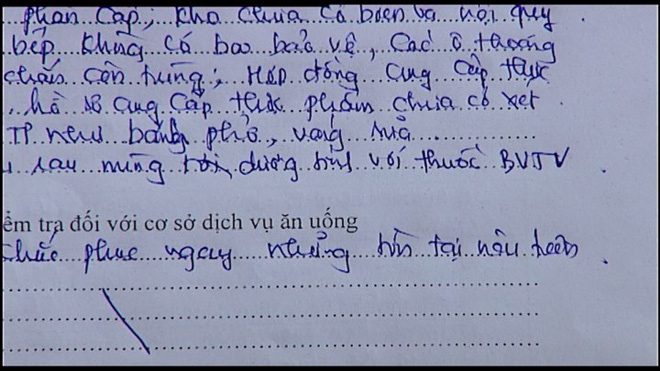 phân cấp, kho chưa có biển và nội quy
bếp không có bao bảo vệ, các ô thoáng
chắn côn trùng; Hợp đồng cung cấp thực
hồ sơ cung cấp thực phẩm chưa có xét
TP như bánh phở, vàng
rau mùng tơi dương tính với thuốc BVTV
ểm tra đối với cơ sở dịch vụ ăn uống
khắc phục ngay những tồn tại nêu trên